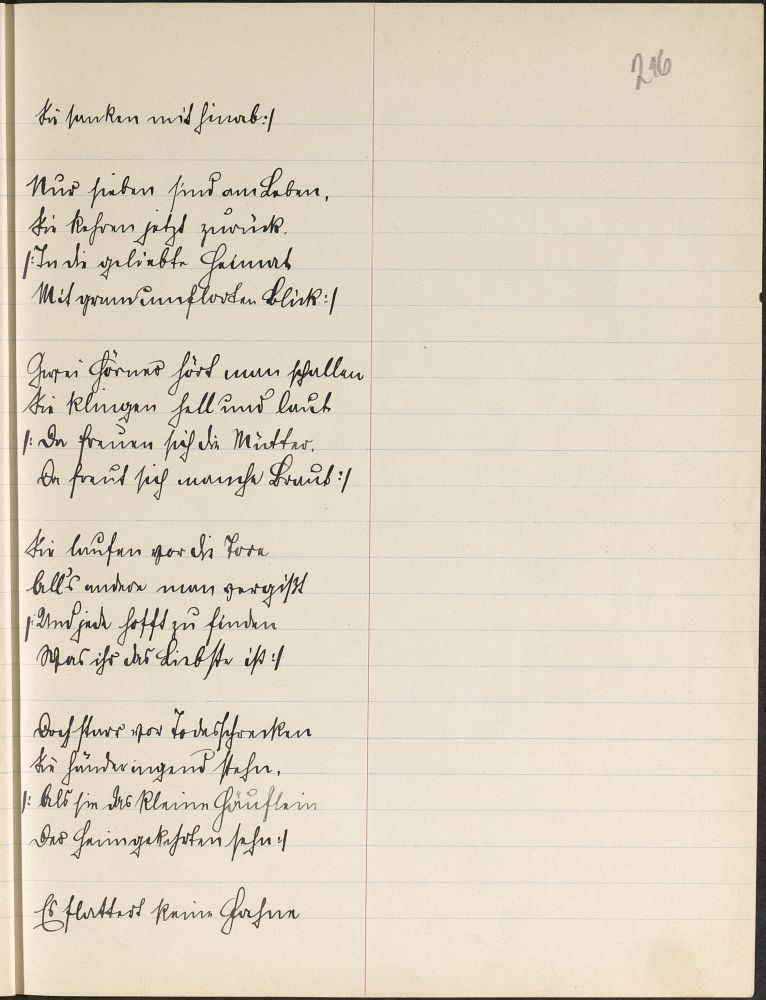 216
Sie sanken mit hinab:/
Nur sieben sind am Leben,
Sie kehren jetzt zurück.
/:In die geliebte Heimat
Mit gramumflorten Blick:/
Zwei Hörner hört man schallen
Sie klingen hell und laut
/: Da freuen sich die Mütter,
Da freut sich manche Braut:/
Sie laufen vor die Tore
All's andere man vergißt
/:Und jede hofft zu finden
Was ihr das Liebste ist:/
Doch starr vor Todesschrecken
Sie händeringend stehn,
/: Als sie das kleine Häuflein
Der Heimgekehrten sehn:/
Es flattert keine Fahne